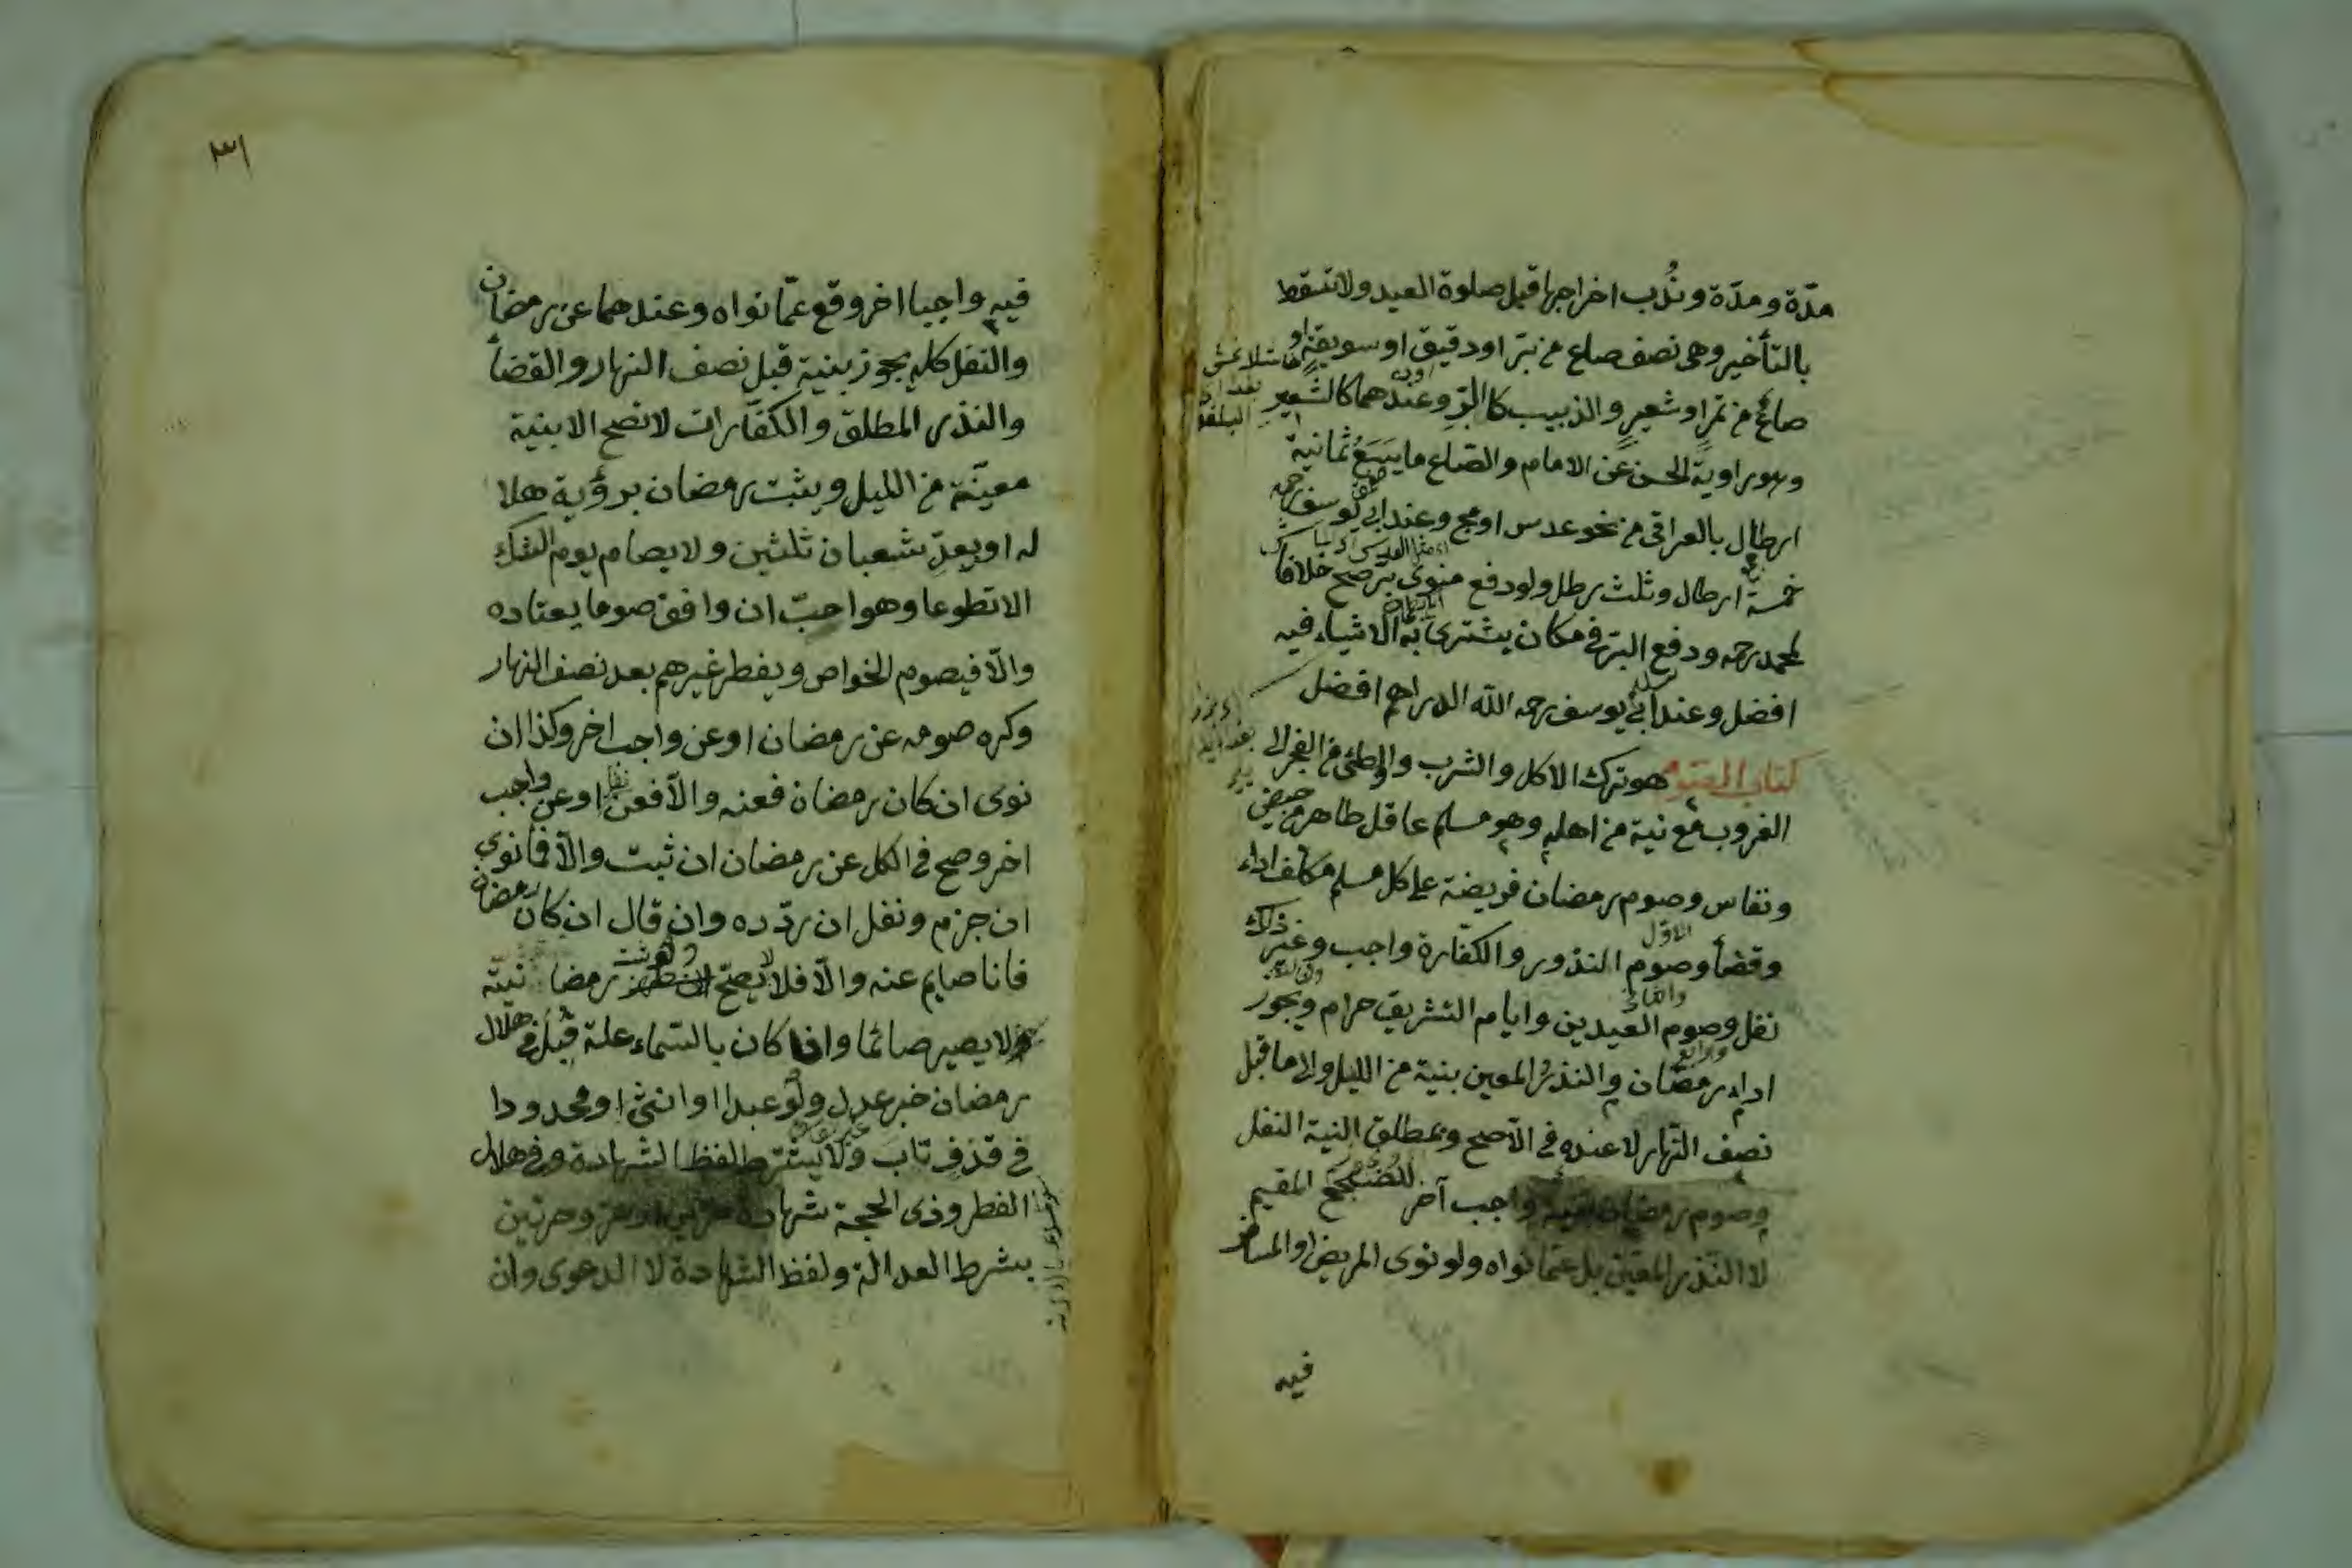 مدّة ومدّة ونُدب اخراجها قبل صلوة العيد ولا تسقط
بالتأخير وهى نصف صاع من برّ او دقيق او سويقه او
صاعٌ من تمرٍ او شعيرٍ والزبيب كالبرّ وعندهما كالشعير
وهو رواية الحسن عن الامام والصّاع ما يَسَعُ ثمانية
ارطال بالعراقى من نحو عدس او مج وعند ابى يوسف رحمه
خمسة ارطال وثلث رطل ولو دفع منوى برّ صح خلافا
لمحمد رحمه ودفع البرّ فى مكان يشترى به الاشياء فيه
افضل وعند ابى يوسف رحمه الله الدراهم افضل
كتاب الصوم هو ترك الاكل والشرب والوطئ من الفجر الى
الغروب مع نية من اهله وهو مسلم عاقل طاهر من حيض
ونفاس وصوم رمضان فريضة على كل مسلم مكلف اداء
وقضأ وصوم النذور والكفّارة واجب وغير ذلك
نفل وصوم العيدين وايام التشريق حرام ويجوز
اداء رمضان والنذر المعين بنية من الليل والى ما قبل
نصف النّهار لا عنده فى الآصح وبمطلق النية النفل
وصوم رمضان بنية واجب آخر للصحيح المقيم
لا النّذر المعيّن بل عمّا نواه ولو نوى المريض او المسافر
فيه
٣١
فيه واجبا اخر وقع عمّا نواه وعندهما عن رمضان
والنفل كله يجوز بنية قبل نصف النهار والقضأ
والنذر المطلق والكفّارات لا تصح الا بنية
معيّنة من الليل ويثبت رمضان برؤية هلا
له او بعدّ شعبان ثلثين ولا يصام يوم الشك
الا تطوعا وهو احبّ ان وافق صوما يعتاده
والّا فيصوم الخواص ويفطر غيرهم بعد نصف النهار
وكره صومه عن رمضان او عن واجب اخر وكذا ان
نوى ان كان رمضان فعنه والّا فعن نفل او عن واجب
اخر وصح فى الكل عن رمضان ان ثبت والّا فما نوى
ان جزم ونفل ان ردّده وان قال ان كان رمضان
فانا صايم عنه والّا فلا لا يصحّ ولو ثبت رمضا نيّته
ولا يصير صائما واذا كان بالسّماء علة قُبِلَ فى هلال
رمضان خبر عدل ولو عبدا او انثى او محدودا
فى قذف تاب ولا يشترط لفظ الشهادة وفى هلال
الفطر وذى الحجة شهادة حرّين او حرّ وحرتين
بشرط العدالة ولفظ الشهادة لا الدعوى وان